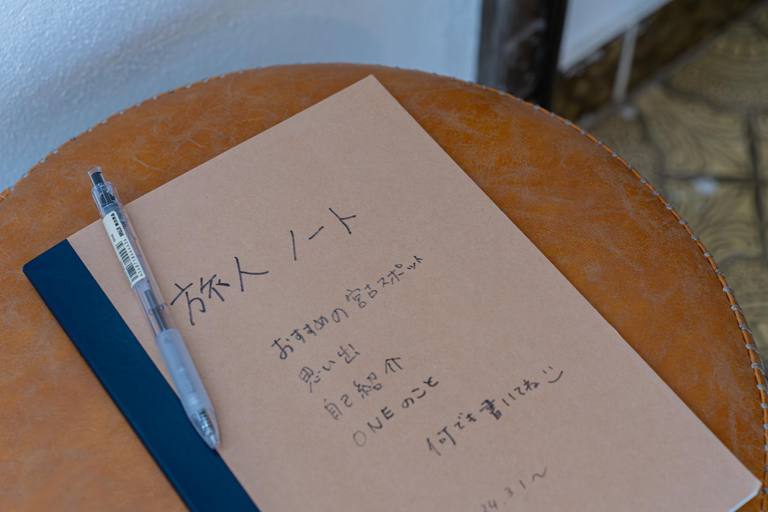 旅人 ノート
おすすめの 宮古スポット
思い出
自己紹介
ONEのこと
何でも書いてね
24.3.1〜